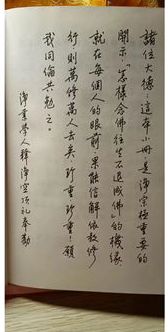 諸位大德 這本小冊是淨宗極重要的
開示「怎樣念佛往生不退成佛」的機緣
就在每個人的眼前 果能信解依教修
行則萬修萬人去矣 珍重珍重！願
我同倫共勉之。
淨業學人釋淨空頂礼奉勸